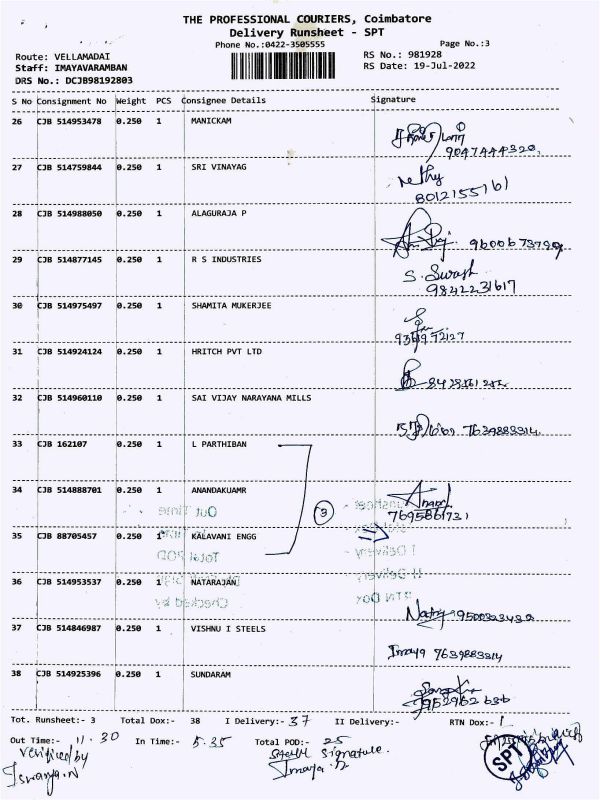 THE PROFESSIONAL COURIERS, Coimbatore
Delivery Runsheet - SPT
Phone No.:0422-3505555
Page No.:3
Route: VELLAMADAI
RS No.: 981928
Staff: IMAYAVARAMBAN
RS Date: 19-Jul-2022
DRS No.: DCJB98192803
S No Consignment No Weight PCS Consignee Details Signature
26 CJB 514953478 0.250 1 MANICKAM
9047444320
27 CJB 514759844 0.250 1 SRI VINAYAG
8012155161
28 CJB 514988050 0.250 1 ALAGURAJA P
29 CJB 514877145 0.250 1 R S INDUSTRIES
9842231617
30 CJB 514975497 0.250 1 SHAMITA MUKERJEE
31 CJB 514924124 0.250 1 HRITCH PVT LTD
32 CJB 514960110 0.250 1 SAI VIJAY NARAYANA MILLS
7639883314
33 CJB 162107 0.250 1 L PARTHIBAN
34 CJB 514888701 0.250 1 ANANDAKUAMR
Anand
7695861731
3
35 CJB 88705457 0.250 1 KALAVANI ENGG
36 CJB 514953537 0.250 1 NATARAJAN
37 CJB 514846987 0.250 1 VISHNU I STEELS
Imaya 7639883314
38 CJB 514925396 0.250 1 SUNDARAM
Tot. Runsheet:- 3 Total Dox:- 38 I Delivery:- 37 II Delivery:- RTN Dox:- 1
Out Time:- 11.30 In Time:- 5.35 Total POD:- 25
Verified by
Staff Signature.
SPT